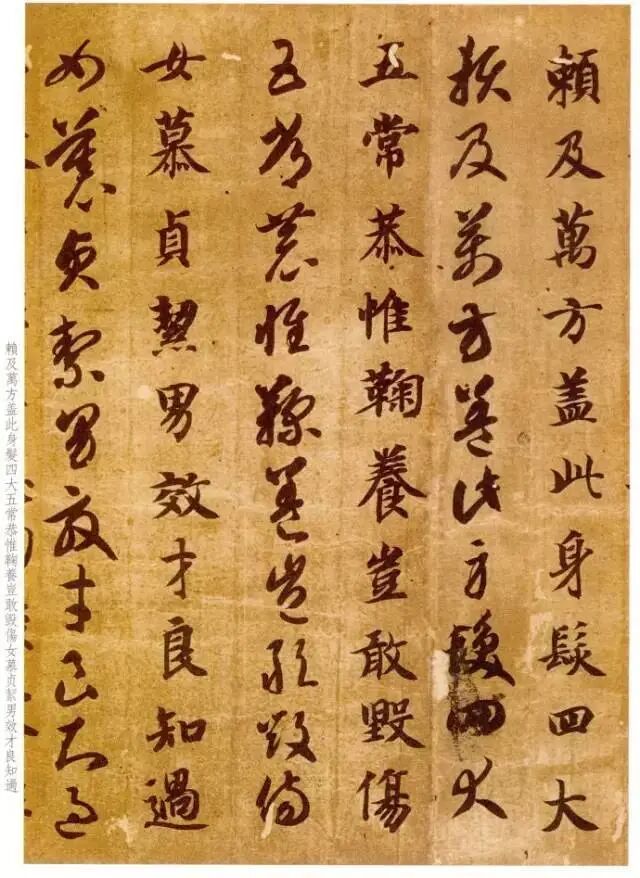 賴及萬方蓋此身髮四大
賴及萬方蓋此身髮四大
五常恭惟鞠養豈敢毀傷
五常恭惟鞠養豈敢毀傷
女慕貞絜男效才良知過
女慕貞絜男效才良知過
賴及萬方蓋此身髮四大五常恭惟鞠養豈敢毀傷女慕貞絜男效才良知過